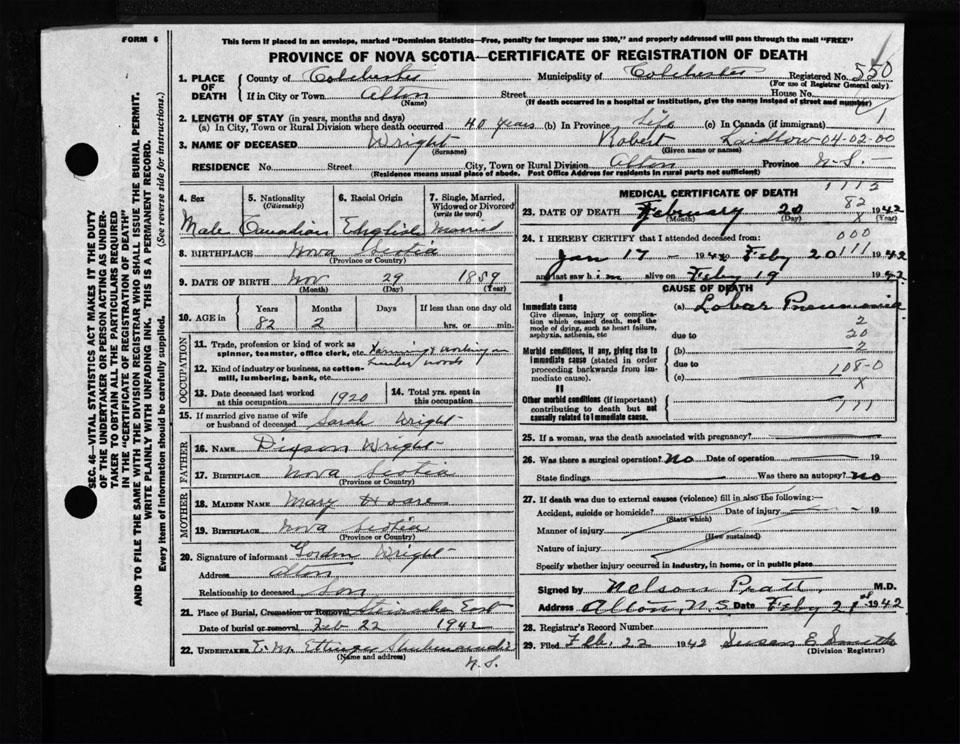 FORM 6
This form if placed in an envelope, marked "Dominion Statistics—Free, penalty for improper use $300," and properly addressed will pass through the mail "FREE"
PROVINCE OF NOVA SCOTIA—CERTIFICATE OF REGISTRATION OF DEATH
SEC. 46—VITAL STATISTICS ACT MAKES IT THE DUTY
OF THE UNDERTAKER OR PERSON ACTING AS UNDER-
TAKER TO OBTAIN ALL THE PARTICULARS REQUIRED
IN THE "CERTIFICATE OF REGISTRATION OF DEATH"
AND TO FILE THE SAME WITH THE DIVISION REGISTRAR WHO SHALL ISSUE THE BURIAL PERMIT.
WRITE PLAINLY WITH UNFADING INK. THIS IS A PERMANENT RECORD.
Every item of information should be carefully supplied. (See reverse side for instructions.)
1. PLACE OF DEATH County of Colchester Municipality of Colchester Registered No. 550
(For use of Registrar General only)
If in City or Town Alton Street House No.
(Name) (If death occurred in a hospital or institution, give the name instead of street and number)
2. LENGTH OF STAY (in years, months and days)
(a) In City, Town or Rural Division where death occurred 40 years (b) In Province Life (c) In Canada (if immigrant)
3. NAME OF DECEASED Wright Robert Laidlow 04-02-00
(Surname) (Given name or names)
RESIDENCE No. Street City, Town or Rural Division Alton Province N.S.
(Residence means usual place of abode. Post Office Address for residents in rural parts not sufficient)
4. Sex 5. Nationality (Citizenship) 6. Racial Origin 7. Single, Married, Widowed or Divorced (write the word)
Male Canadian English Married
8. BIRTHPLACE Nova Scotia
(Province or Country)
9. DATE OF BIRTH Nov 29 1859
(Month) (Day) (Year)
10. AGE in Years Months Days If less than one day old
82 2 hrs. or min.
OCCUPATION
11. Trade, profession or kind of work as
spinner, teamster, office clerk, etc. Farming & working in
lumber woods
12. Kind of industry or business, as cotton-
mill, lumbering, bank, etc.
13. Date deceased last worked at this occupation 1920 14. Total yrs. spent in this occupation
15. If married give name of wife
or husband of deceased Sarah Wright
FATHER
16. NAME Dixson Wright
17. BIRTHPLACE Nova Scotia
(Province or Country)
MOTHER
18. MAIDEN NAME Mary Hoare
19. BIRTHPLACE Nova Scotia
(Province or Country)
20. Signature of informant Gordon Wright
Address Alton
Relationship to deceased Son
21. Place of Burial, Cremation or Removal Stewiacke East
Date of burial or removal Feb 22 1942
22. UNDERTAKER E. M. Ettinger Shubenacadie
(Name and address)
N.S.
MEDICAL CERTIFICATE OF DEATH
1112
82
23. DATE OF DEATH February 20 1942
(Month) (Day) (Year)
X
24. I HEREBY CERTIFY that I attended deceased from:
000
Jan 17 - 1942 Feby 20 1942
111
and last saw him alive on Feby 19 1942
CAUSE OF DEATH
I
Immediate cause (a) Lobar Pneumonia
Give disease, injury or complica-
tion which caused death, not the
mode of dying, such as heart failure,
asphyxia, asthenia, etc
due to
2
20
2
Morbid conditions, if any, giving rise to
immediate cause (stated in order
proceeding backwards from im-
mediate cause).
(b)
due to
(c)
108-0
X
II
Other morbid conditions (if important)
contributing to death but not
causally related to immediate cause.
111
25. If a woman, was the death associated with pregnancy?
26. Was there a surgical operation? No Date of operation 19
State findings Was there an autopsy? No
27. If death was due to external causes (violence) fill in also the following:—
Accident, suicide or homicide? Date of injury 19
(State which)
Manner of injury
(How sustained)
Nature of injury
Specify whether injury occurred in industry, in home, or in public place
Signed by Nelson Pratt M.D.
Address Alton, N.S. Date Feby 21st 1942
28. Registrar's Record Number
29. Filed Feb. 22 1942 Susan E Smith
(Division Registrar)